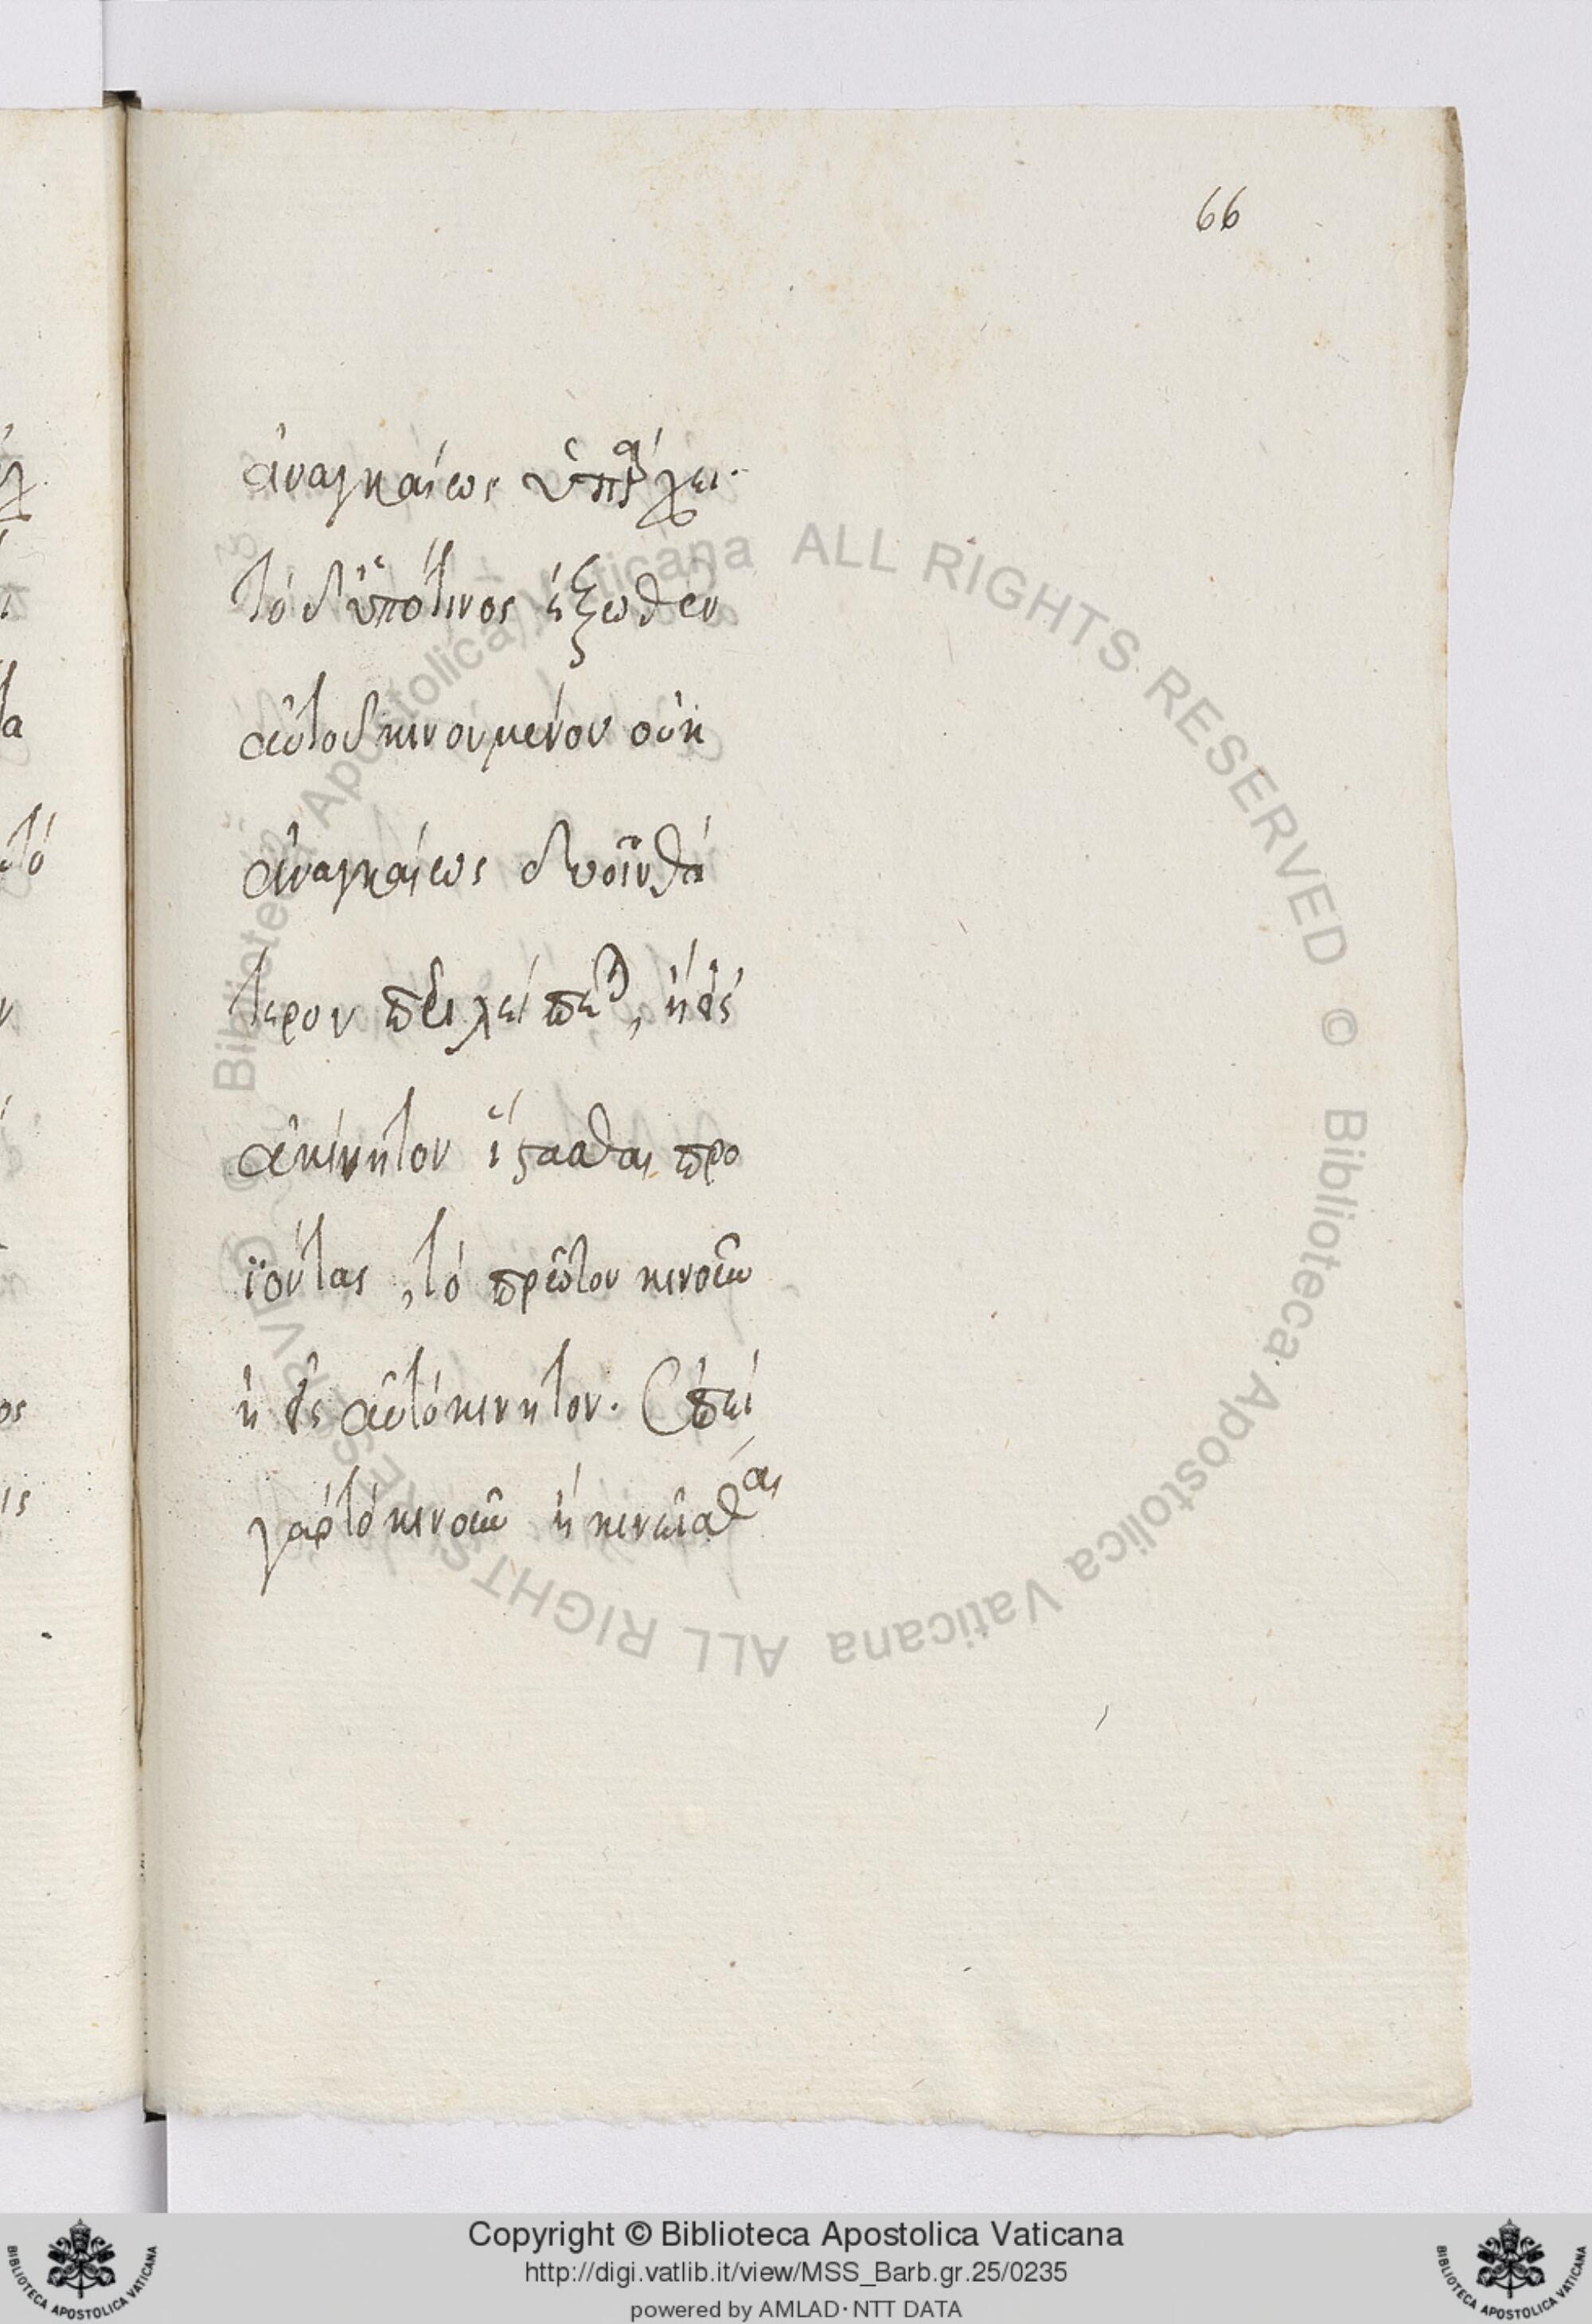 66
ἀναγκαίως ὑπάρχει·
τὸ δ' ὑπό τινος ἔξωθεν
αὐτοῦ κινούμενον οὐκ
ἀναγκαίως δυοῖν θά
τερον περιλείπεται, ἢ εἰς
ἀκίνητον ἵστασθαι προ
ϊόντας, τὸ πρῶτον κινοῦν
ἢ εἰς αὐτοκίνητον. Ἐπεὶ
γὰρ τὸ κινοῦν ἢ κινεῖσθαι
Biblioteca Apostolica Vaticana ALL RIGHTS RESERVED ©
Biblioteca Apostolica Vaticana ALL RIGHTS RESERVED ©
Copyright © Biblioteca Apostolica Vaticana
http://digi.vatlib.it/view/MSS_Barb.gr.25/0235
powered by AMLAD·NTT DATA
BIBLIOTECA APOSTOLICA VATICANA
BIBLIOTECA APOSTOLICA VATICANA